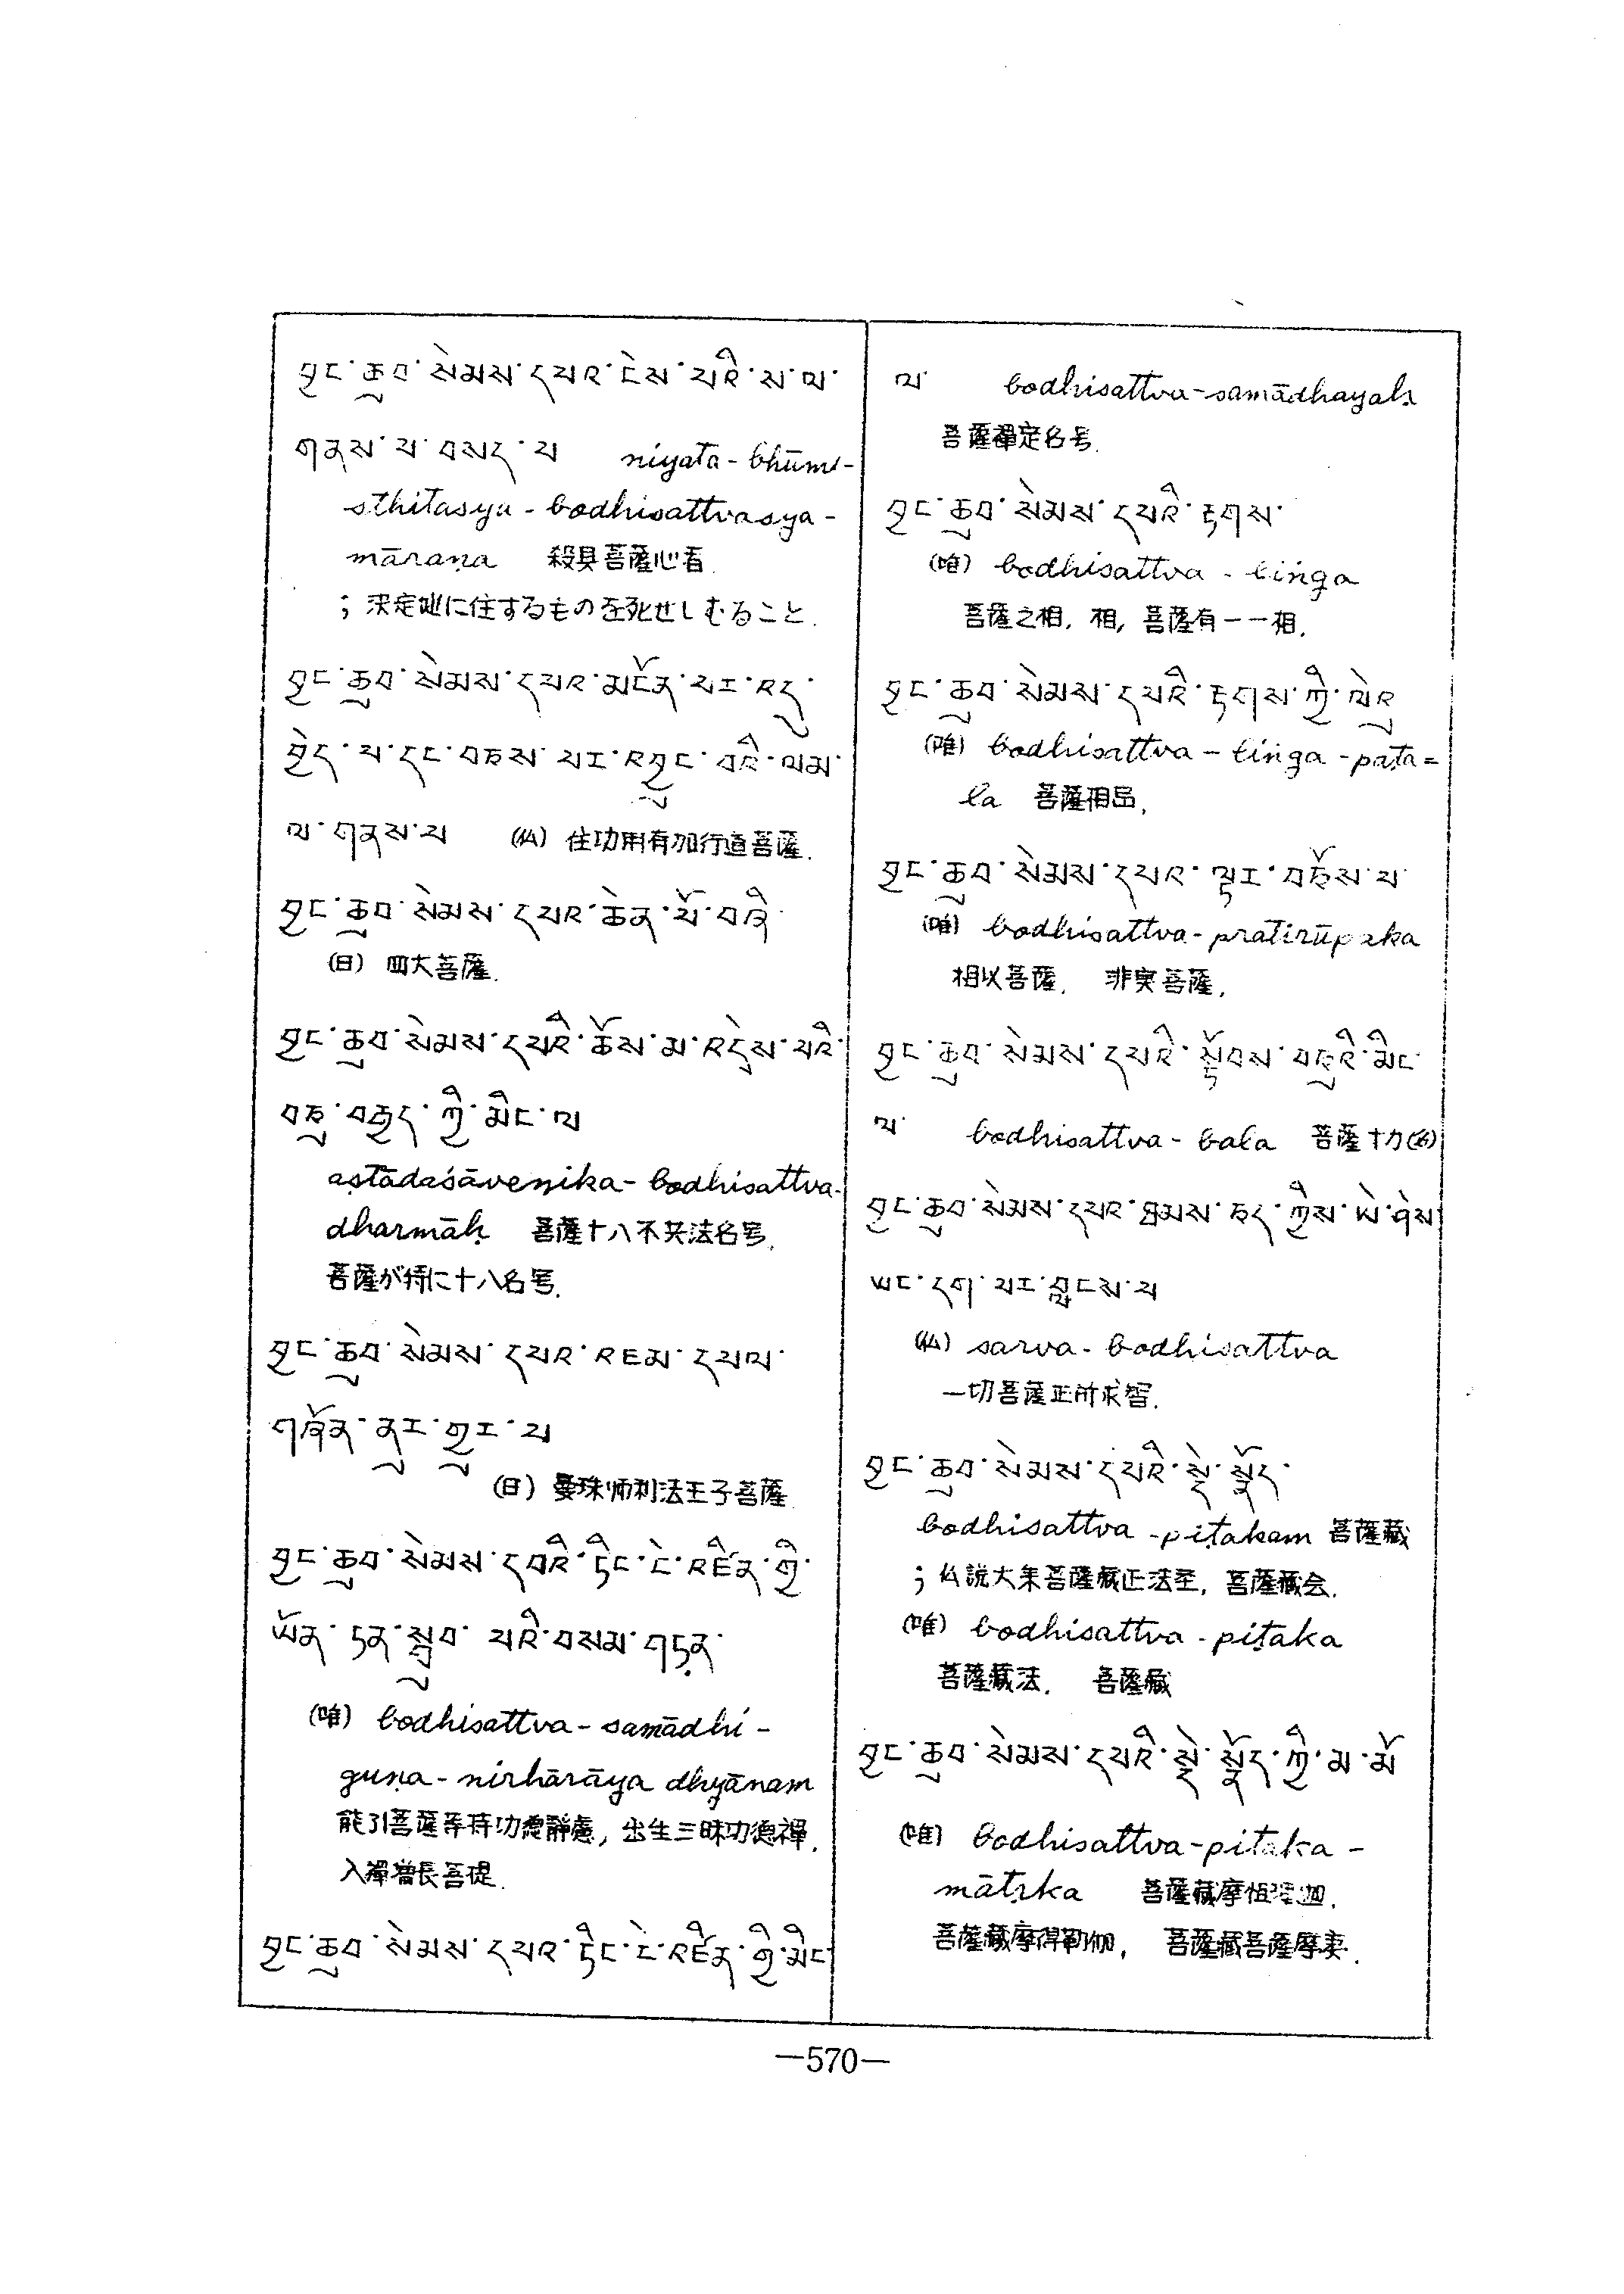 བྱང་ཆུབ་སེམས་དཔར་ངེས་པའི་ས་ལ་
གནས་པ་བསད་པ niyata-bhūmi-
sthitasya-bodhisattvasya-
māraṇa 殺具菩薩心看
; 決定地に住するものを死せしむること.
བྱང་ཆུབ་སེམས་དཔར་མངོན་པར་འདུ་
བྱེད་པ་དང་བཅས་པར་འབྱུང་བའི་ལམ་
ལ་གནས་པ (仏) 住功用有加行道菩薩.
བྱང་ཆུབ་སེམས་དཔར་ཆེན་པོ་བཞི་
(日) 四大菩薩.
བྱང་ཆུབ་སེམས་དཔའི་ཆོས་མ་འདྲེས་པའི་
བཅུ་བརྒྱད་ཀྱི་མིང་ལ
aṣṭādaśāveṇika-bodhisattva-
dharmāḥ 菩薩十八不共法名号.
菩薩が特に十八名号.
བྱང་ཆུབ་སེམས་དཔར་འཇམ་དཔལ་
གཞོན་ནུར་གྱུར་པ
(日) 曼珠师利法王子菩薩
བྱང་ཆུབ་སེམས་དཔའི་ཏིང་ངེ་འཛིན་གྱི་
ཡོན་ཏན་སྒྲུབ་པའི་བསམ་གཏན་
(唯) bodhisattva-samādhi-
guṇa-nirhārāya dhyānam
能引菩薩等持功德靜慮, 出生三昧功德禪.
入禪增長菩提.
བྱང་ཆུབ་སེམས་དཔར་ཏིང་ངེ་འཛིན་གྱི་མིང་
ལ་ bodhisattva-samādhayaḥ
菩薩禪定名号.
བྱང་ཆུབ་སེམས་དཔའི་རྟགས་
(唯) bodhisattva-liṅga
菩薩之相, 相, 菩薩有一一相.
བྱང་ཆུབ་སེམས་དཔའི་རྟགས་ཀྱི་ལེའུ
(唯) bodhisattva-liṅga-paṭa=
la 菩薩相品.
བྱང་ཆུབ་སེམས་དཔར་ལྟར་བཅོས་པ་
(唯) bodhisattva-pratirūpaka
相似菩薩, 非実菩薩.
བྱང་ཆུབ་སེམས་དཔའི་སྟོབས་བཅུའི་མིང་
ལ་ bodhisattva-bala 菩薩十力(名)
བྱང་ཆུབ་སེམས་དཔར་ཐམས་ཅད་ཀྱིས་ཡེ་ཤེས
ཡང་དག་པར་བླངས་པ
(仏) sarva-bodhisattva
一切菩薩正所求智.
བྱང་ཆུབ་སེམས་དཔའི་སྡེ་སྣོད་
bodhisattva-piṭakam 菩薩藏
; 仏說大乘菩薩藏正法经, 菩薩藏会.
(唯) bodhisattva-piṭaka
菩薩藏法, 菩薩藏
བྱང་ཆུབ་སེམས་དཔའི་སྡེ་སྣོད་ཀྱི་མ་མོ
(唯) bodhisattva-piṭaka-
mātṛka 菩薩藏摩怛理迦.
菩薩藏摩得勒伽, 菩薩藏菩薩摩夷.
—570—